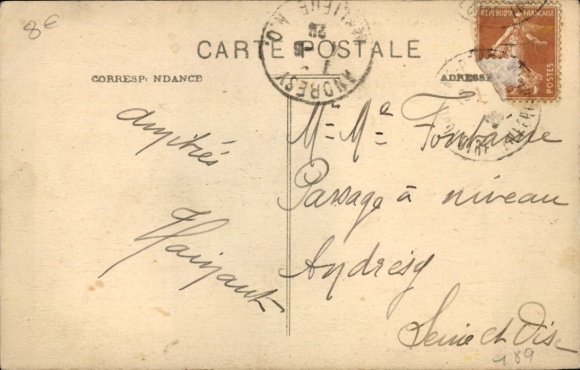 8€
CARTE POSTALE
CORRESPONDANCE
ADRESSE
RÉPUBLIQUE FRANÇAISE
POSTES
ANDRESY
28
amitiés
Mr Me Fontaine
Passage à niveau
Andrésy
Seine et Oise
489